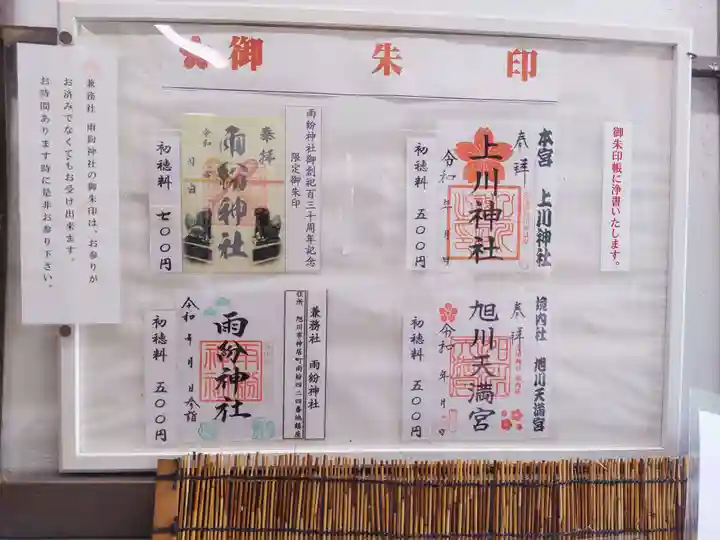 御朱印
御朱印帳に浄書いたします。
本宮 上川神社
奉拝
上川神社
令和 年 月 日
初穂料 五〇〇円
境内社 旭川天満宮
奉拝
旭川天満宮
令和 年 月 日
初穂料 五〇〇円
雨紛神社御創祀百三十周年記念
限定御朱印
奉拝
雨紛神社
令和 年 月 日
初穂料 七〇〇円
兼務社 雨紛神社
住所 旭川市神居町雨紛四二四番地鎮座
雨紛神社
令和 年 月 日参詣
初穂料 五〇〇円
兼務社 雨紛神社の御朱印は、お参りが
お済みでなくてもお受け出来ます。
お時間あります時に是非お参り下さい。